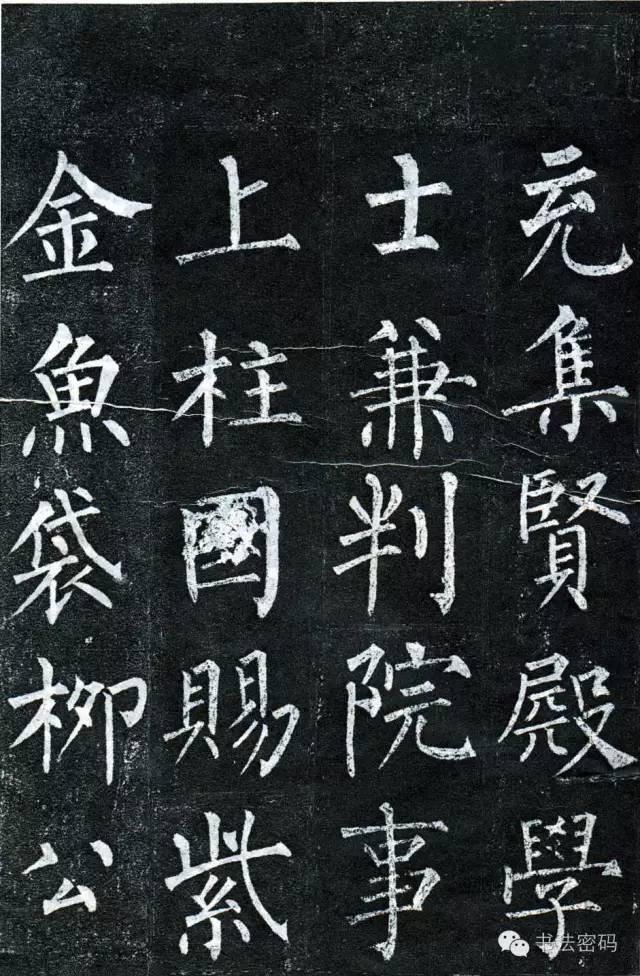 充集賢殿學
士兼判院事
上柱國賜紫
金魚袋柳公
书法密码